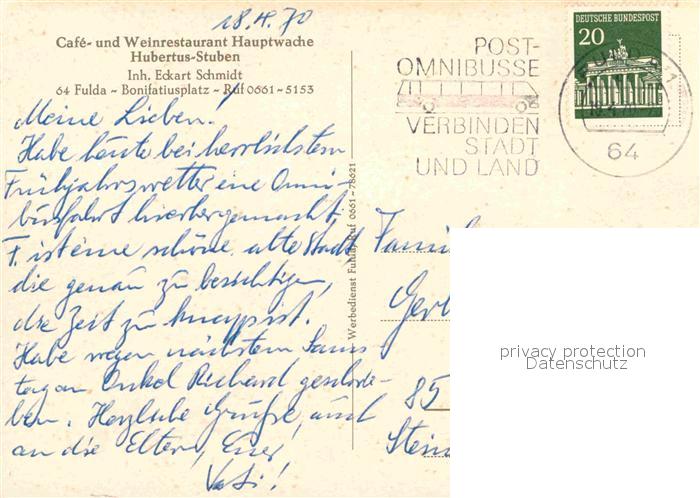 18.4.70
Café- und Weinrestaurant Hauptwache
Hubertus-Stuben
Inh. Eckart Schmidt
64 Fulda - Bonifatiusplatz - Ruf 0661-5153
Meine Lieben!
Habe heute bei herrlichstem
Frühjahrswetter eine Omni-
busfahrt hierher gemacht.
F. ist eine schöne alte Stadt
die genau zu besichtigen,
die Zeit zu knapp ist.
Habe wegen nächstem Sams-
tag an Onkel Richard geschrie-
ben. Herzliche Grüße, auch
an die Eltern, Euer
Vati!
Werbedienst Fulda, Ruf 0661-78621
POST-
OMNIBUSSE
VERBINDEN
STADT
UND LAND
DEUTSCHE BUNDESPOST
20
FULDA 1
64
Famil
Gert
85
Stein
privacy protection
Datenschutz